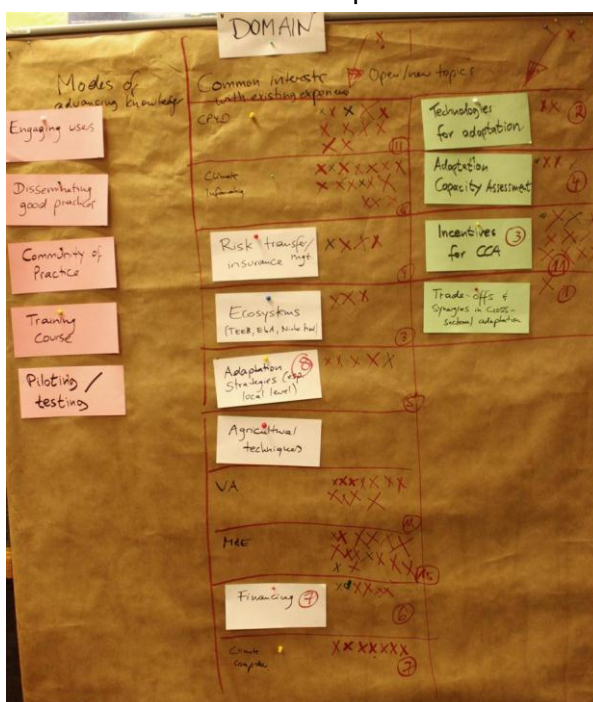 DOMAIN
Modes of
advancing knowledge
Engaging uses
Disseminating
good practices
Community of
Practice
Training
Course
Piloting /
testing
Common interests
with existing exponents
CP4D
11
Climate
Risk transfer/
insurance mgt.
Ecosystems
(TEEB, EbA,
3
Adaptation 8
Strategies (esp
local level)
5
Agricultural
techniques
VA
M&E
15
Financing 7
6
Climate
7
Open/new topics
Technologies
for adaptation
2
Adaptation
Capacity Assessment
4
Incentives 3
for CCA
11
Trade-offs &
Synergies in cross-
sectoral adaptation
1